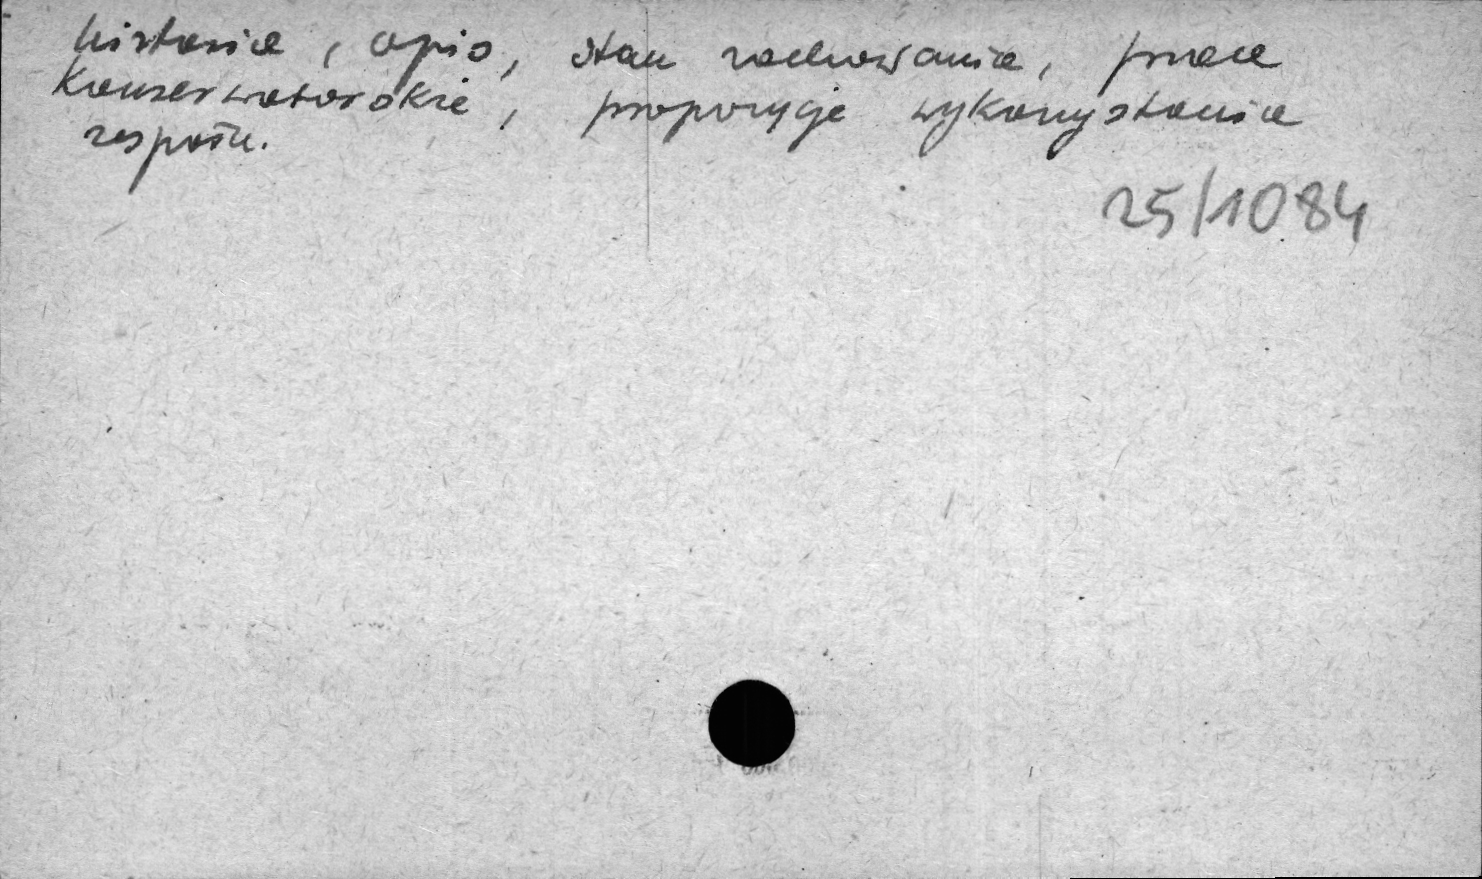 historia, opis, stan zachowania, prace
konserwatorskie, propozycje wykorzystania
zespołu.
25/1084